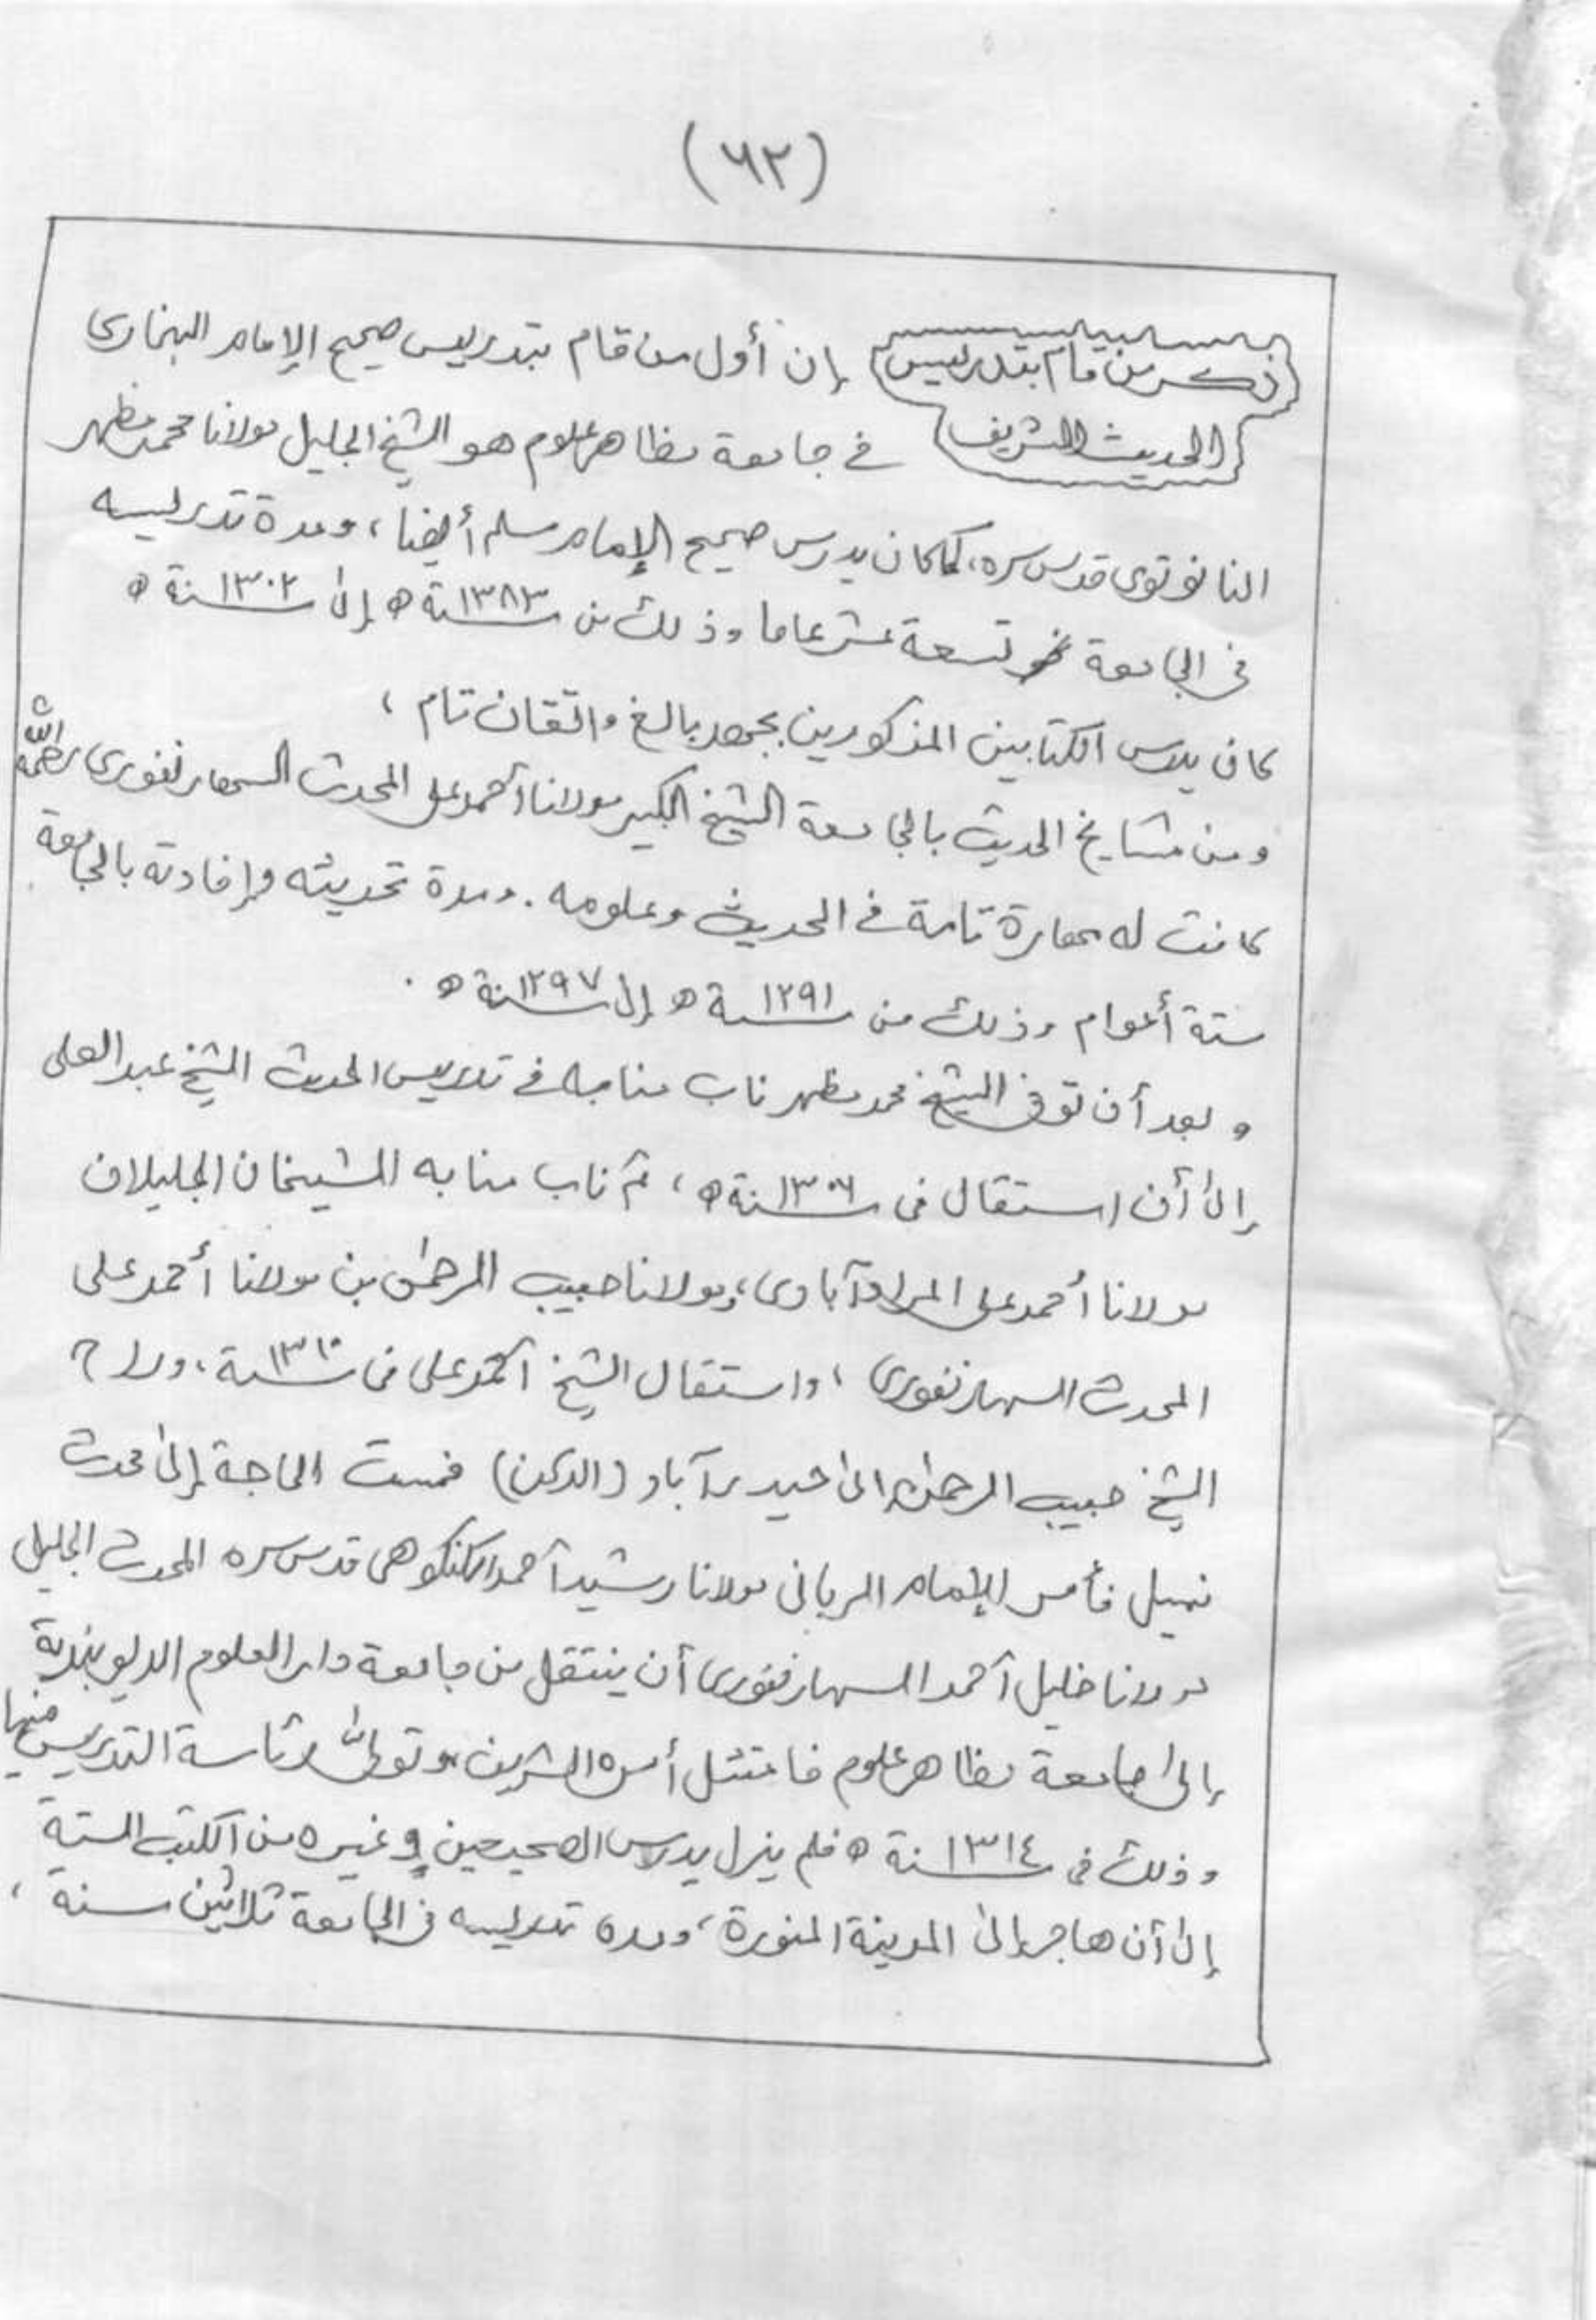 (٦٢)
ذكر من قام بتدريس إن أول من قام بتدريس صحيح الإمام البخارى
الحديث الشريف في جامعة مظاهر علوم هو الشيخ الجليل مولانا محمد مظهر
النانوتوى قدس سره، كما كان يدرس صحيح الإمام مسلم أيضا، ومدة تدريسه
فى الجامعة نحو تسعة عشر عاما وذلك من سنة ١٣٨٣ھ إلى سنة ١٣٠٢ھ
كان يدرس الكتابين المذكورين بجهد بالغ واتقان تام،
ومن مشايخ الحديث بالجامعة الشيخ الكبير مولانا أحمد على المحدث السهارنفورى رحمه الله
كانت له مهارة تامة فى الحديث وعلومه. ومدة تحديثه وإفادته بالجامعة
ستة أعوام وذلك من سنة ١٢٩١ھ إلى سنة ١٢٩٧ھ.
وبعد أن توفى الشيخ محمد مظهر ناب منابه فى تدريس الحديث الشيخ عبد العلى
إلى أن استقال فى سنة ١٣٠٦ھ، ثم ناب منابه الشيخان الجليلان
مولانا أحمد على المرادآبادى، ومولانا حبيب الرحمن بن مولانا أحمد على
المحدث السهارنفورى، واستقال الشيخ أحمد على فى سنة ١٣١٠، وراح
الشيخ حبيب الرحمن إلى حيدرآباد (الدكن) فمست الحاجة إلى محدث
نبيل فأمر الإمام الربانى مولانا رشيد أحمد الكنكوهى قدس سره المحدث الجليل
مولانا خليل أحمد السهارنفورى أن ينتقل من جامعة دار العلوم الديوبندية
إلى جامعة مظاهر علوم فامتثل أمره الشريف وتولى رئاسة التدريس فيها
وذلك فى سنة ١٣١٤ھ فلم يزل يدرس الصحيحين وغيره من الكتب الستة
إلى أن هاجر إلى المدينة المنورة، ومدة تدريسه فى الجامعة ثلاثين سنة،